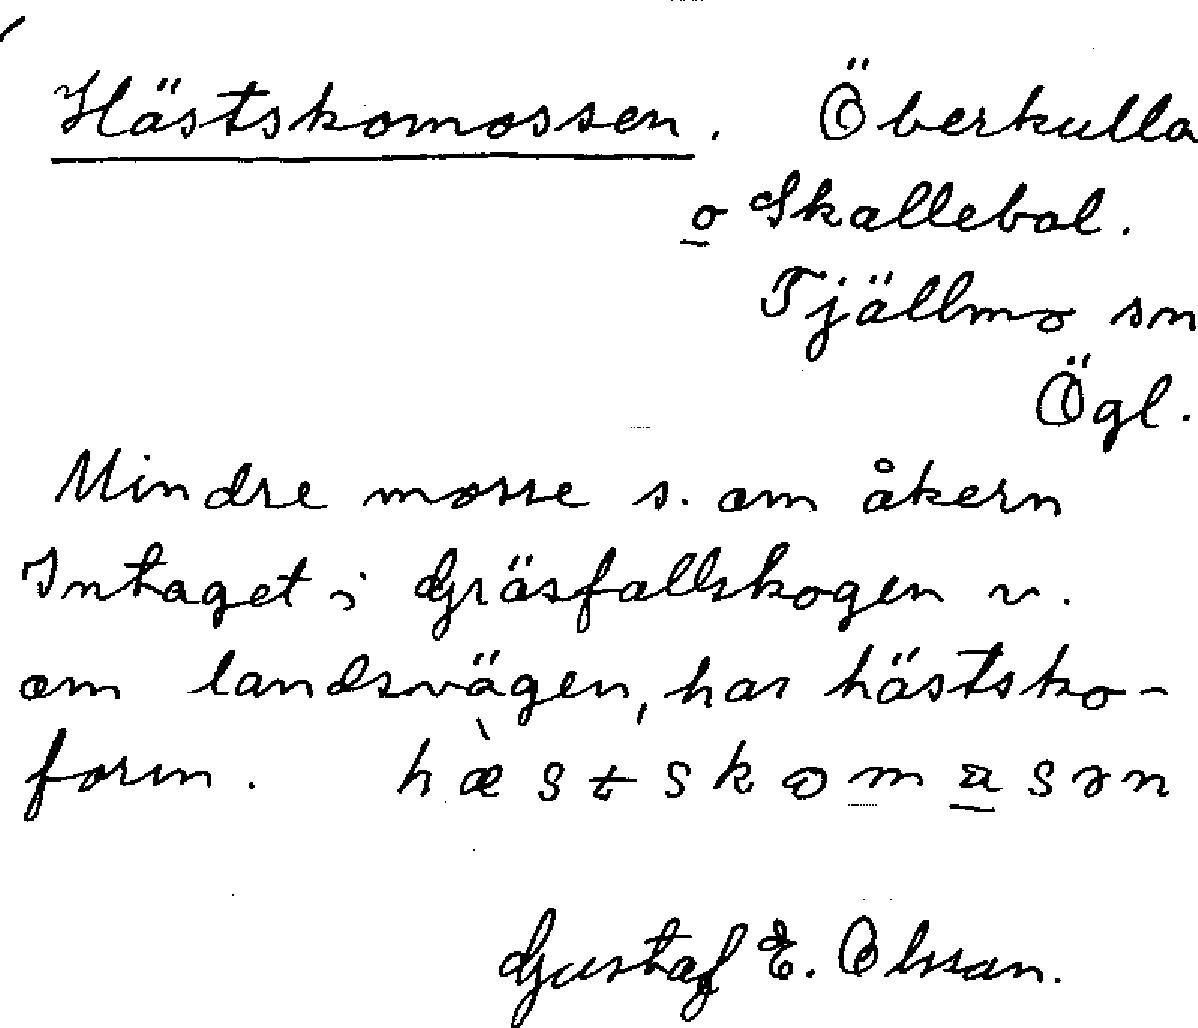 Hästskomossen. Öberkulla
o Skallebol.
Tjällmo sn
Ögl.
Mindre mosse s. om åkern
Intaget i Gräsfallskogen v.
om landsvägen, har hästsko-
form.
Gustaf E. Olsson.